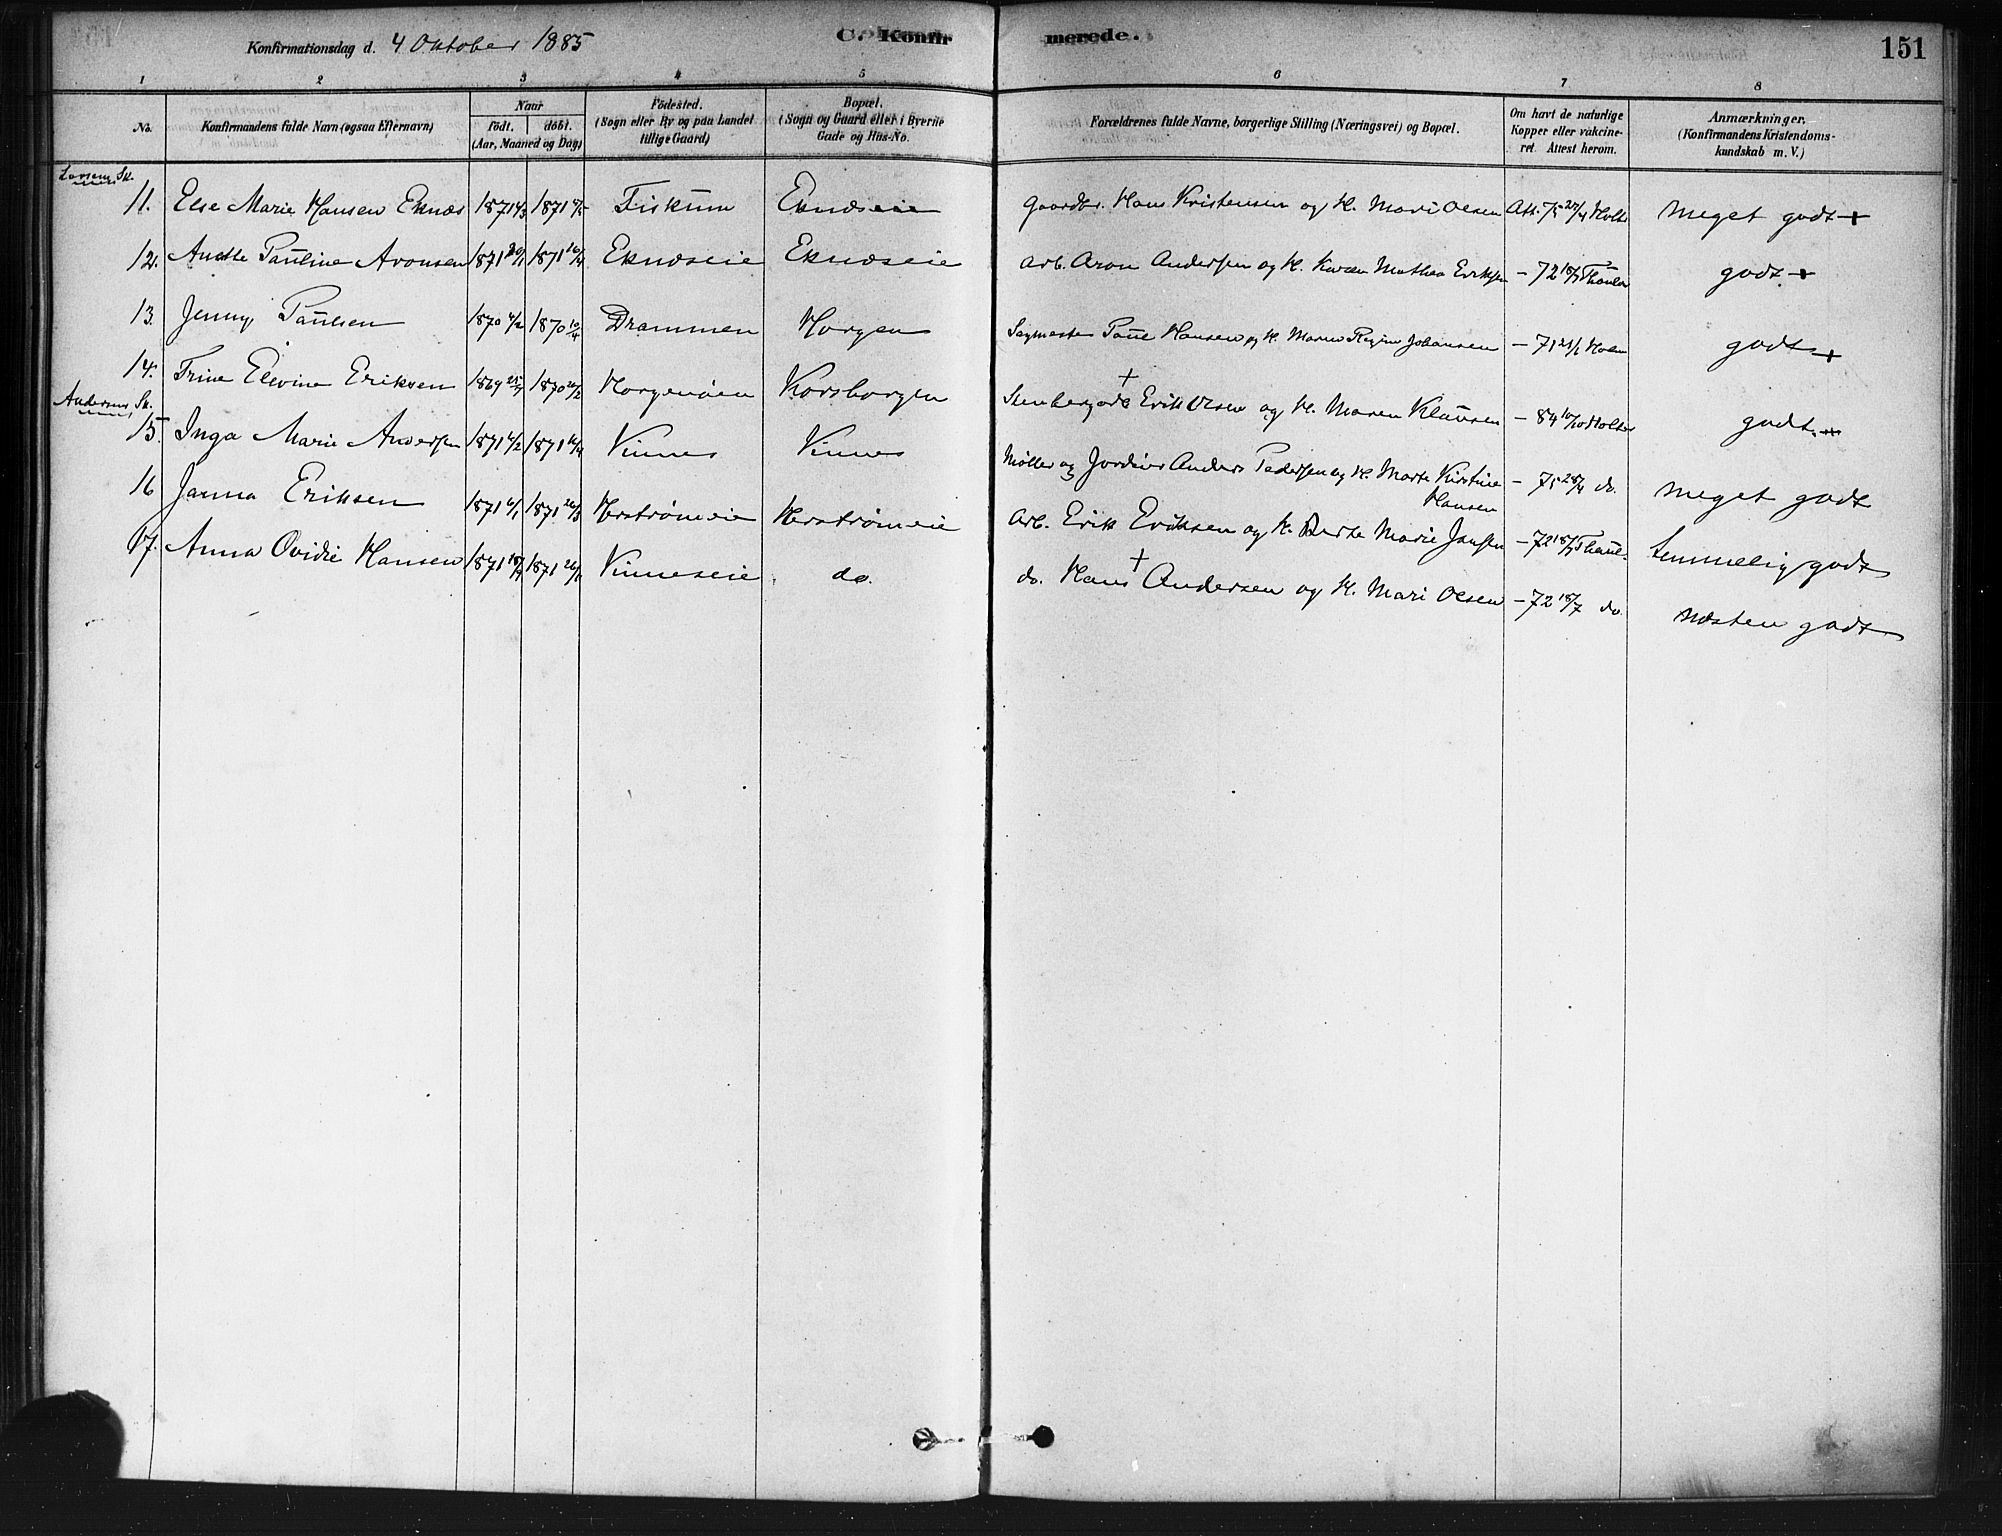 Konfirmationsdag d. 4 Oktober 1885 C. Konfirmerede. 151
1 2 3 4 5 6 7 8
No. Konfirmandens fulde Navn (ogsaa Efternavn) Naar født. døbt. (Aar, Maaned og Dag) Födested. (Sogn eller By og paa Landet tillige Gaard) Bopæl. (Sogn og Gaard eller i Byerne Gade og Hus-No. Forældrenes fulde Navne, borgerlige Stilling (Næringsvei) og Bopæl. Om havt de naturlige Kopper eller vakcineret. Attest herom. Anmærkninger. (Konfirmandens Kristendomskundskab m. V.)
Larsens Sk.
11. Else Marie Hansen Eknæs 1871 4/3 1871 9/5 Fiskum Eknæseie Gaardbr. Hans Kristensen og H. Mari Olsen Att. 75 27/4 Holter Meget godt +
12. Anette Pauline Aronsen 1871 20/1 1871 16/4 Eknæseie Eknæseie Arb. Aron Andersen og H. Karen Mathea Eriksen – 72 18/7 Thaulow godt +
13. Jenny Paulsen 1870 4/2 1870 10/4 Drammen Horgen Sagmester Paul Hansen og H. Maren Regine Johansen – 71 21/1 Holm godt +
14. Trine Elevine Eriksen 1869 25/9 1870 20/2 Horgenøien Korsborgen Stenbergarb. Erik Olsen + og H. Maren Klausen – 84 10/10 Holter godt. +
Andersens Sk.
15. Inga Marie Andersen 1871 4/2 1871 16/4 Vinnes Vinnes Møller og Jordeier Anders Pedersen og H. Marte Kirstine Hansen – 75 28/4 do. meget godt
16 Janna Eriksen 1871 6/1 1871 26/3 Herstrømeie Herstrømeie Arb. Erik Eriksen og H. Berte Marie Jansen – 72 18/7 Thaul. temmelig godt
17. Anna Ovidie Hansen 1871 18/9 1871 26/1 Vinneseie do. do. Hans Andersen + og H. Mari Olsen – 72 18/7 do. næsten godt